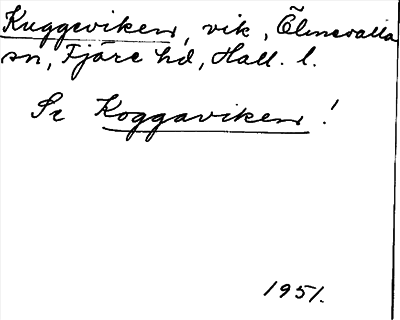 Kuggeviken, vik, Ölmevalla
sn, Fjäre hd, Hall. l.
Se Koggaviken!
1951.